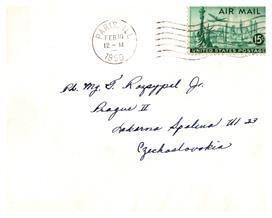 PARIS, ILL.
FEB 10
12 - M
1950
AIR MAIL
15¢
UNITED STATES POSTAGE
Ph. Mg. T. Rozsypal Jr.
Prague II
Spalena Ul 23
Czechoslovakia